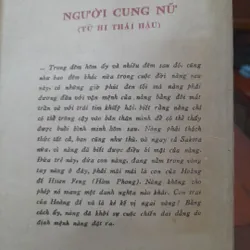 NGƯỜI CUNG NỮ
(TỪ HI THÁI HẬU)
... Trong đêm hôm ấy và nhiều đêm sau đó, cũng
như bao đêm khác nữa trong cuộc đời nàng sau
này, có những giờ phút đen tối mà nàng phải
đương đầu với vận mệnh của nàng bằng đôi mắt
trần và với trái tim khiếp hãi, biết rằng nàng chỉ
có thể trông cậy vào bản thân mình để có thể thấy
được buổi bình minh hôm sau. Nàng phải thách
thức tất cả, bạn cũng như thù, nó ngay cả Sakota
nữa, vì nàng đã biết được điều bí mật của nàng.
Đứa trẻ này, đứa con nàng, đang nằm trong vòng
tay nàng ở đây, phải mãi mãi là con của Hoàng
đế Hsien Feng (Hàm Phong). Nàng không cho
phép nó mang một danh nghĩa nào khác. Con trai
của Hoàng đế và là kẻ kế vị ngai vàng! Bằng
cách ấy, nàng đã khởi sự cuộc chiến dai dẳng do
định mệnh nàng đặt ra.